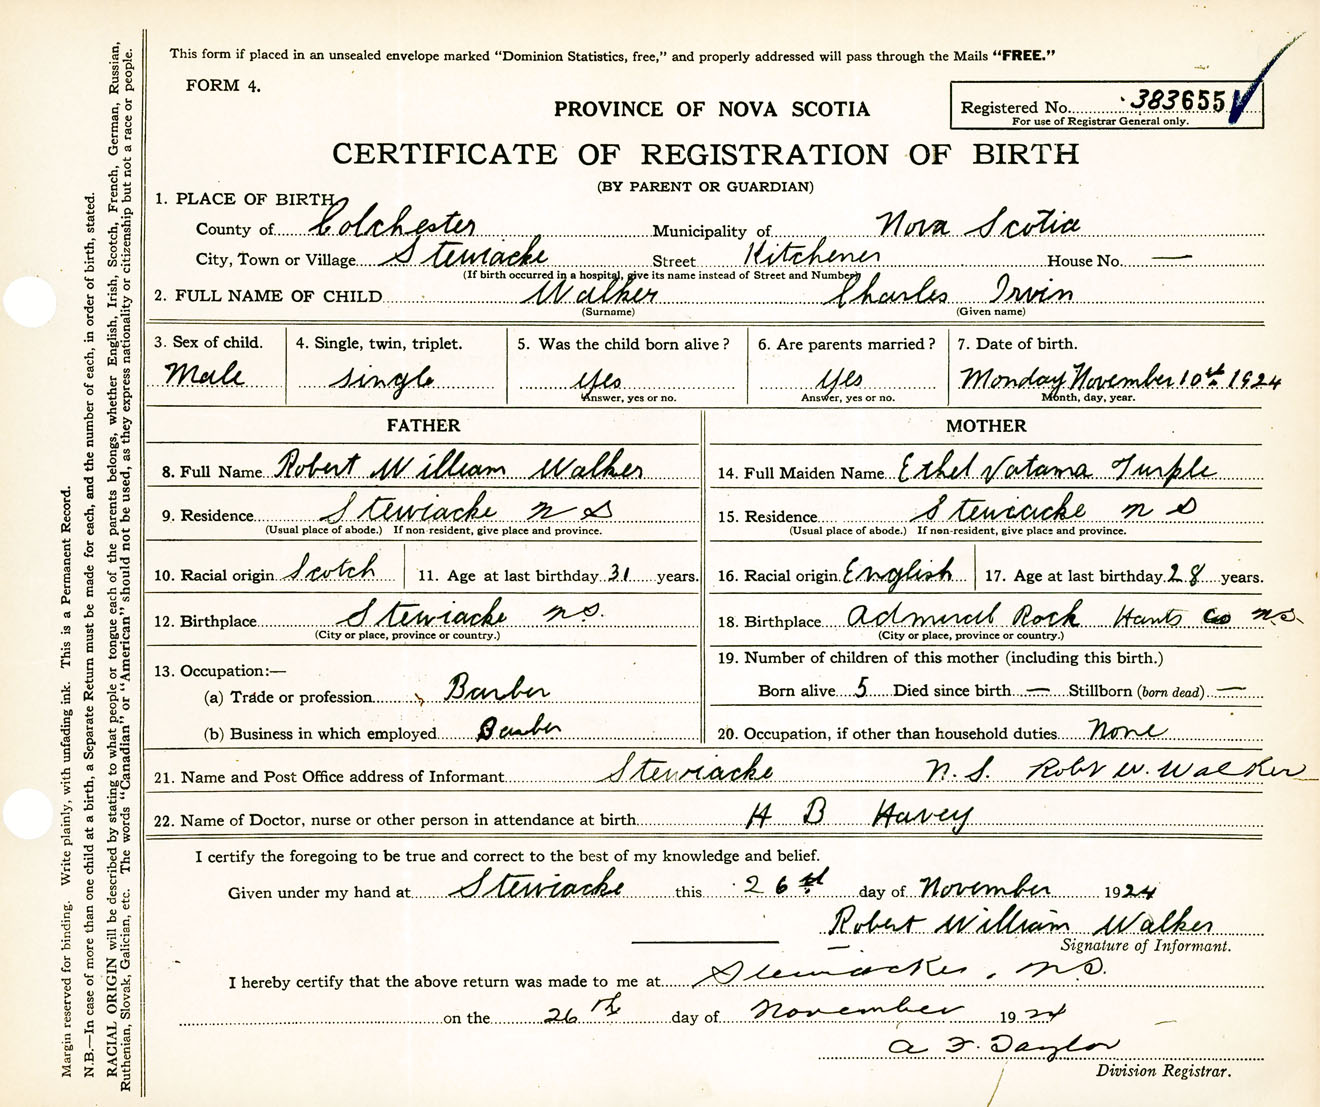 This form if placed in an unsealed envelope marked "Dominion Statistics, free," and properly addressed will pass through the Mails "FREE."
FORM 4.
PROVINCE OF NOVA SCOTIA
Registered No. 383655
For use of Registrar General only.
CERTIFICATE OF REGISTRATION OF BIRTH
(BY PARENT OR GUARDIAN)
1. PLACE OF BIRTH
County of Colchester Municipality of Nova Scotia
City, Town or Village Stewiacke Street Kitchener House No. —
(If birth occurred in a hospital, give its name instead of Street and Number)
2. FULL NAME OF CHILD Walker Charles Irvin
(Surname) (Given name)
3. Sex of child. 4. Single, twin, triplet. 5. Was the child born alive? 6. Are parents married? 7. Date of birth.
Male single yes yes Monday November 10th 1924
Answer, yes or no. Answer, yes or no. Month, day, year.
FATHER MOTHER
8. Full Name Robert William Walker 14. Full Maiden Name Ethel Turple
9. Residence Stewiacke N S 15. Residence Stewiacke N S
(Usual place of abode.) If non-resident, give place and province. (Usual place of abode.) If non-resident, give place and province.
10. Racial origin Scotch 11. Age at last birthday 31 years. 16. Racial origin English 17. Age at last birthday 28 years.
12. Birthplace Stewiacke N.S. 18. Birthplace Admiral Rock Hants Co N.S.
(City or place, province or country.) (City or place, province or country.)
13. Occupation:— 19. Number of children of this mother (including this birth.)
(a) Trade or profession Barber Born alive 5 Died since birth — Stillborn (born dead) —
(b) Business in which employed Barber 20. Occupation, if other than household duties None
21. Name and Post Office address of Informant Stewiacke N.S. Robt W. Walker
22. Name of Doctor, nurse or other person in attendance at birth H B Havey
I certify the foregoing to be true and correct to the best of my knowledge and belief.
Given under my hand at Stewiacke this 26th day of November 1924
Robert William Walker
Signature of Informant.
I hereby certify that the above return was made to me at Stewiacke, N.S.
on the 26th day of November 1924
A F Taylor
Division Registrar.
Margin reserved for binding. Write plainly, with unfading ink. This is a Permanent Record.
N.B.—In case of more than one child at a birth, a Separate Return must be made for each, and the number of each, in order of birth, stated.
RACIAL ORIGIN will be described by stating to what people or tongue each of the parents belongs, whether English, Irish, Scotch, French, German, Russian,
Ruthenian, Slovak, Galician, etc. The words "Canadian" or "American" should not be used, as they express nationality or citizenship but not a race or people.